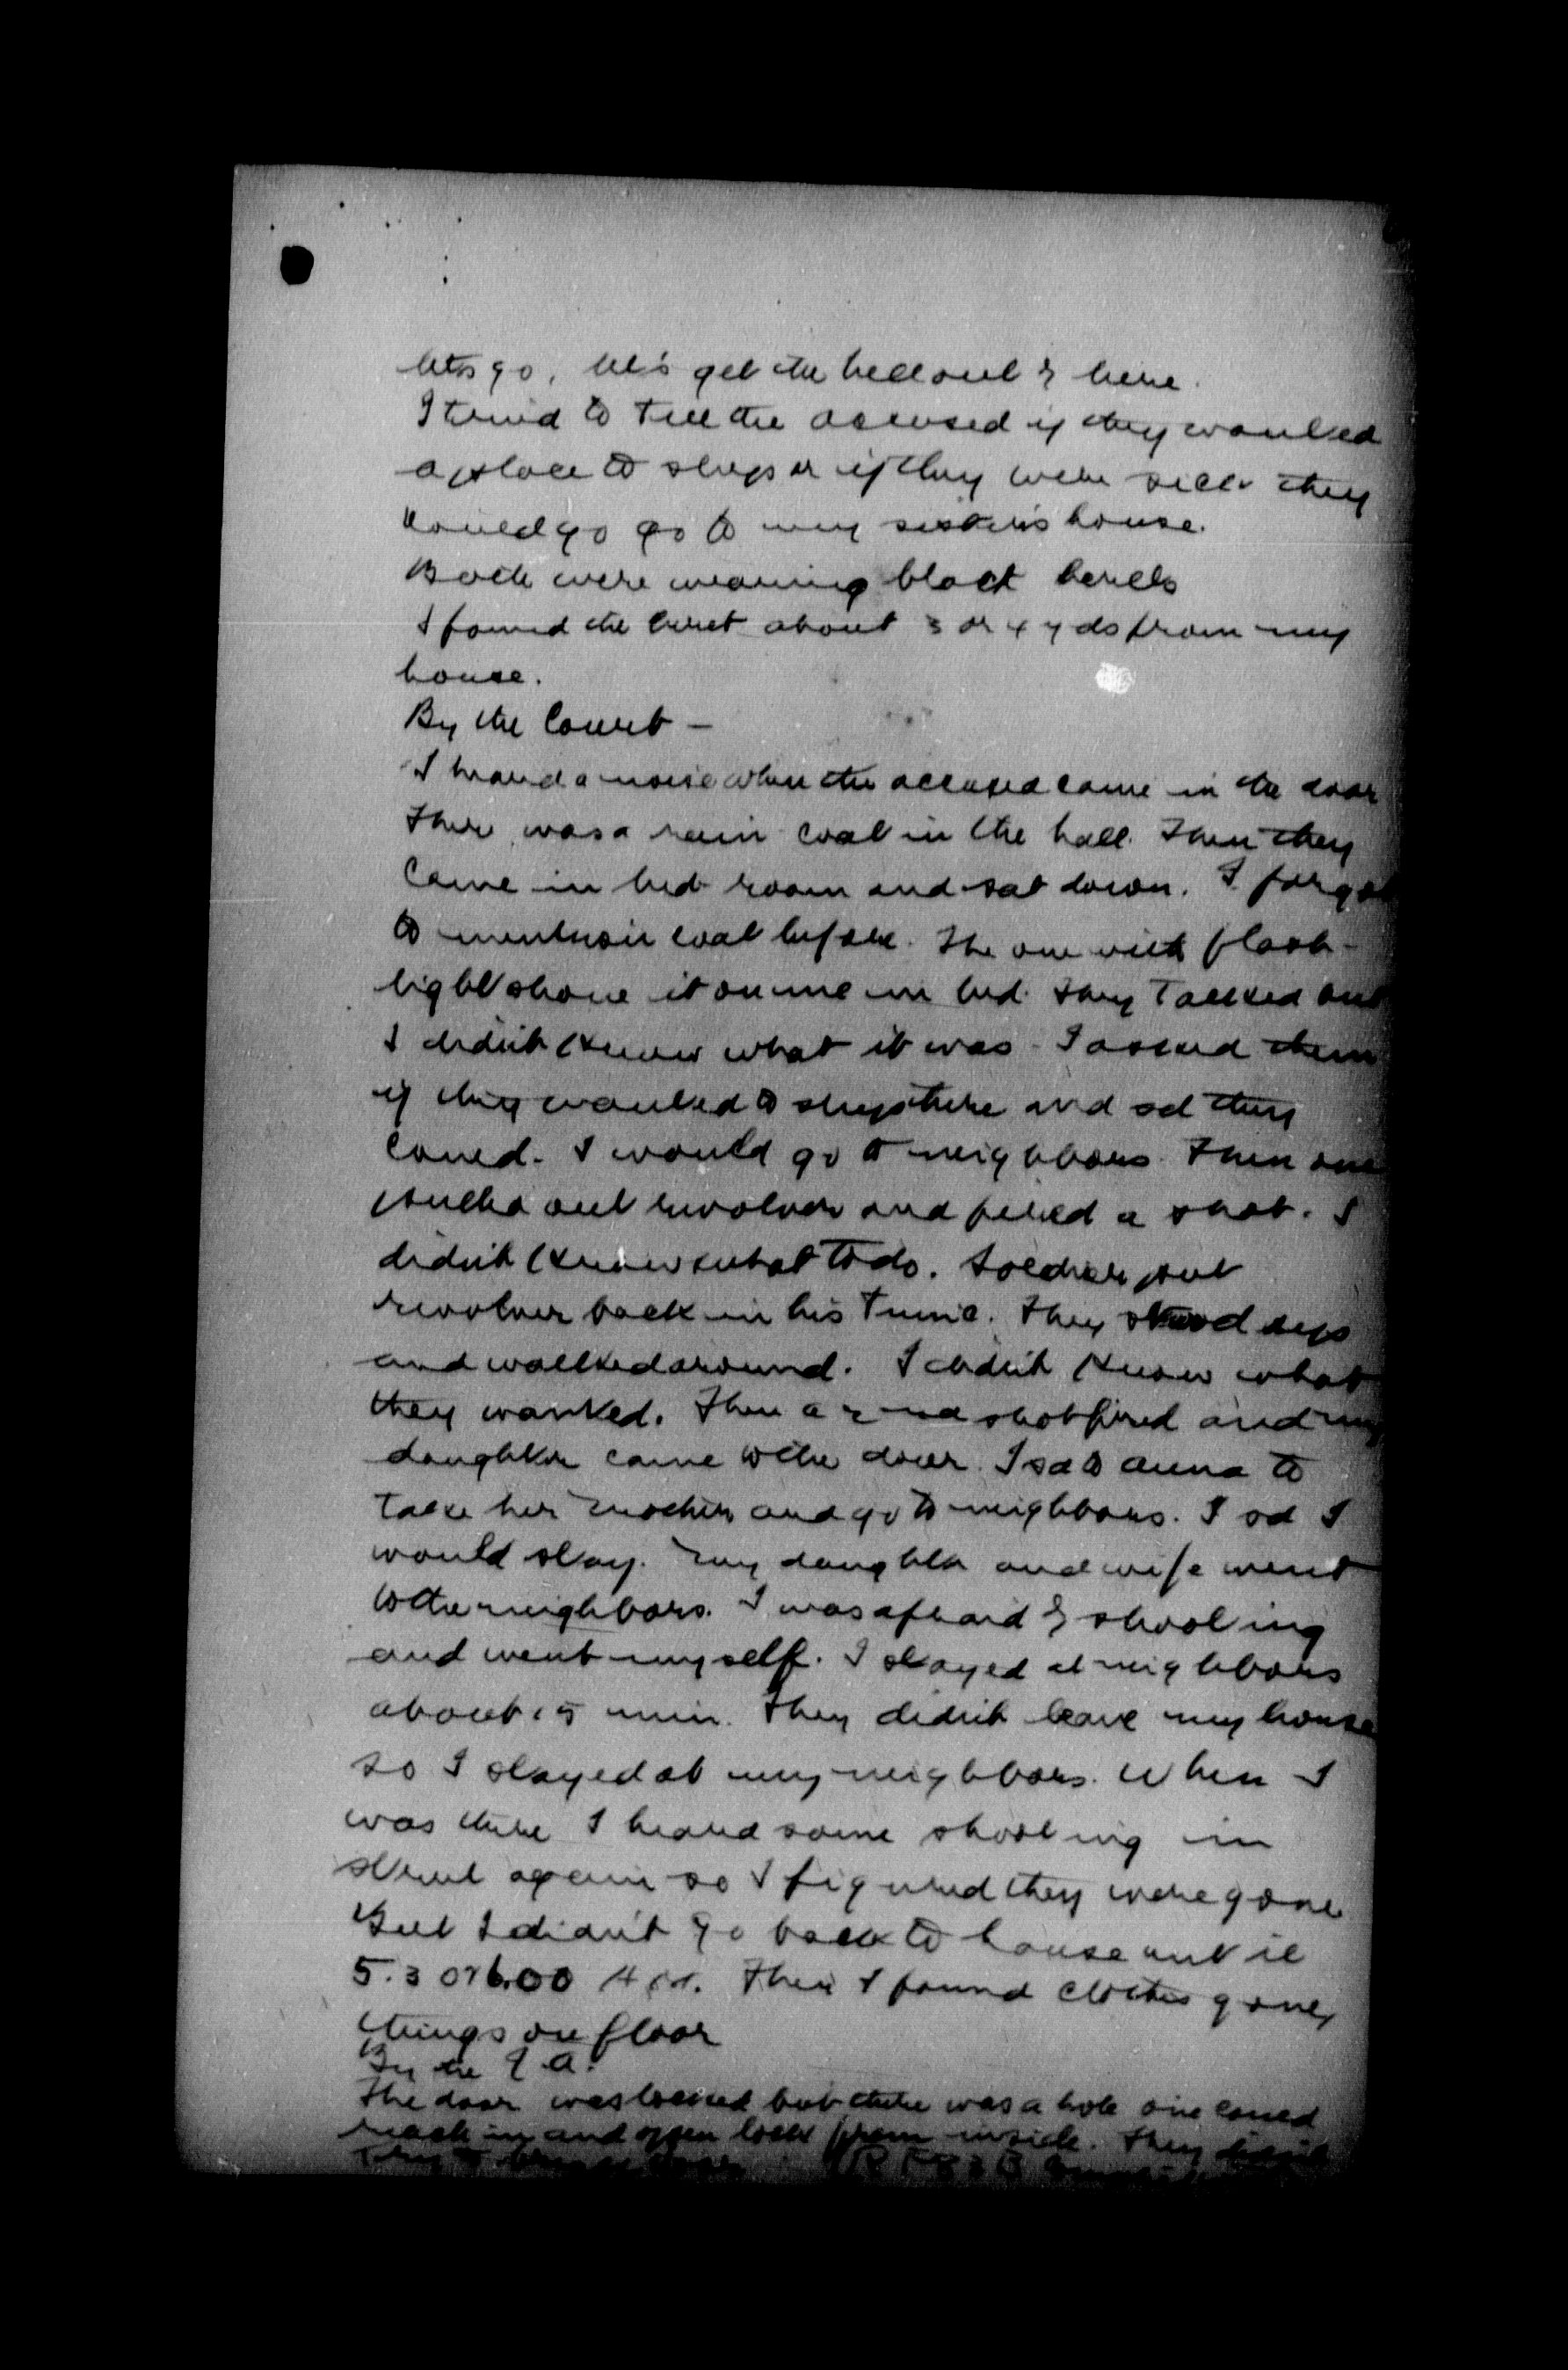 let's go, let's get the hell out of here.
I tried to tell the accused if they wanted
a place to sleep or if they were sick they
could go go to my sister's house.
Both were wearing black berets
I found the beret about 3 or 4 yds from my
house.
By the Court -
I heard a noise when the accused came in the door
There was a rain coat in the hall. Then they
came in bed room and sat down. I forgot
to mention coat before. The one with flash-
light shone it on me in bed. They talked but
I didn't know what it was. I asked them
if they wanted to sleep there and sd they
could. I would go to neighbors. Then one
pulled out revolver and fired a shot. I
didn't know what to do. Soldier put
revolver back in his tunic. They stood up
and walked around. I didn't know what
they wanted. Then a 2nd shot fired and my
daughter came to the door. I sd to Anna to
take her mother and go to neighbors. I sd I
would stay. My daughter and wife went
to the neighbors. I was afraid of shooting
and went myself. I stayed at neighbors
about 15 min. They didn't leave my house
so I stayed at my neighbors. When I
was there I heard some shooting in
street again so I figured they were gone
But I didn't go back to house until
5.30 or 6.00 Hrs. Then I found clothes gone,
things on floor
By the J.A.
The door was locked but there was a hole one could
reach in and open lock from inside. They didn't
Try to break door R P 83 B